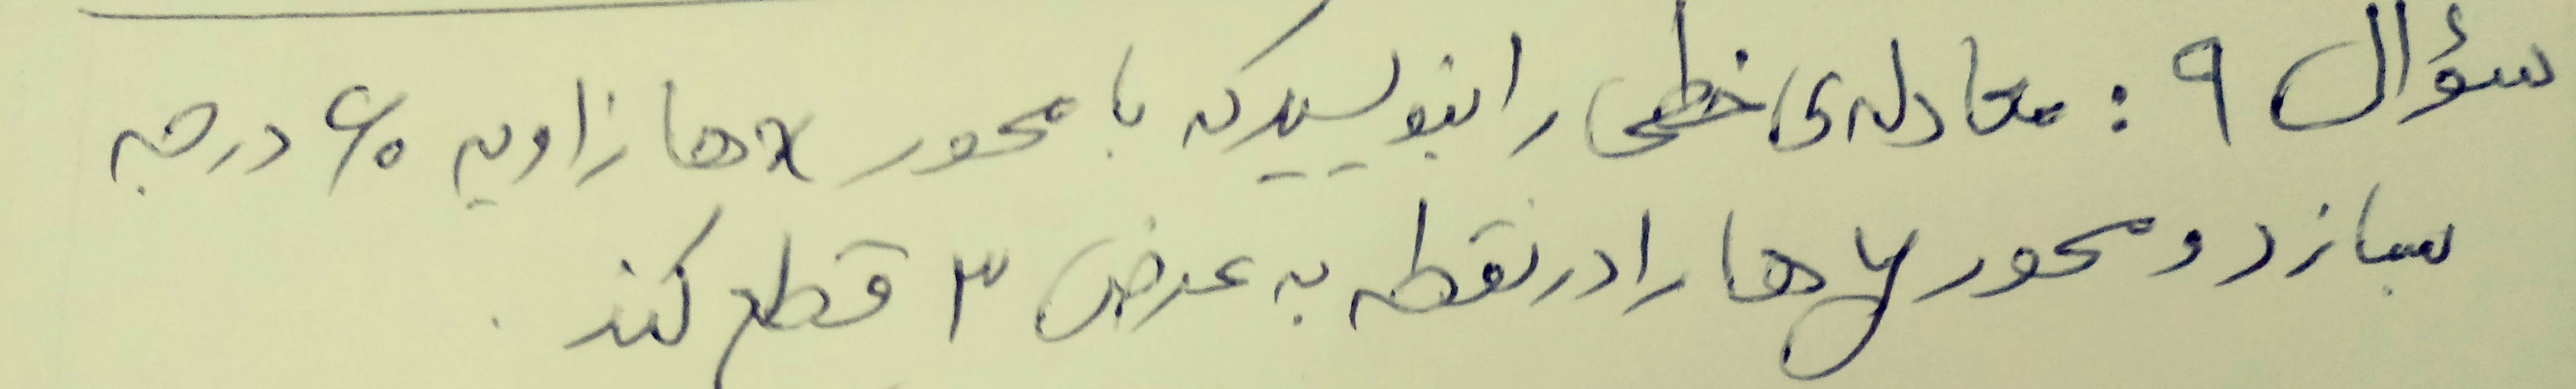 سؤال ۹ : معادله‌ی خطی را بنویسید که با محور x ها زاویه ۶۰ درجه
بسازد و محور y ها را در نقطه به عرض ۳ قطع کند.